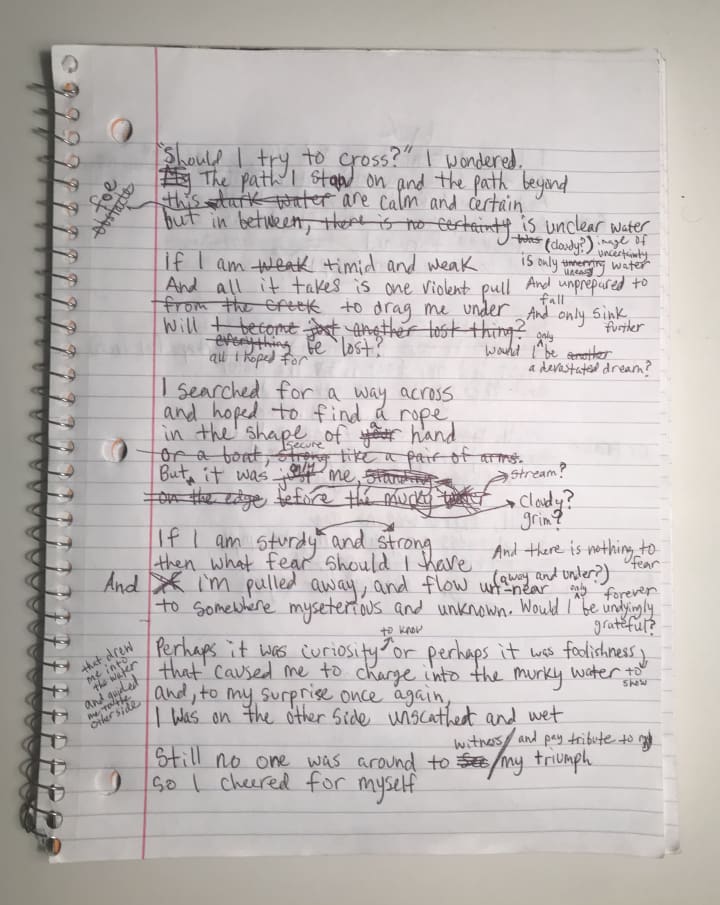 "Should I try to cross?" I wondered.
My The path I stand on and the path beyond
foe
obstacle
this dark water are calm and certain
but in between, there is no certainty is unclear water
was (cloudy?) image of
uncertainty
If I am weak timid and weak
is only unnerving water
uneasy
And all it takes is one violent pull
And unprepared to
fall
from the creek to drag me under
And only sink
further
Will I become just another lost thing?
everything be lost?
all I hoped for
only
would I be another
a devastated dream?
I searched for a way across
and hoped to find a rope
in the shape of your a hand
or a boat, strong secure like a pair of arms.
But, it was just me, standing
stream?
on the edge before the murky water
cloudy?
grim?
If I am sturdy and strong
then what fear should I have
And there is nothing to
fear
And I'm pulled away, and flow un-near
(away and under?)
only forever
to somewhere myseterious and unknown. Would I be undyingly
grateful?
to know
Perhaps it was curiosity or perhaps it was foolishness,
that drew
me into
the water
and guided
me to the
other side
that caused me to charge into the murky water to
show
and, to my surprise once again,
I was on the other side unscathed and wet
witness/and pay tribute to my
Still no one was around to see/my triumph
so I cheered for myself